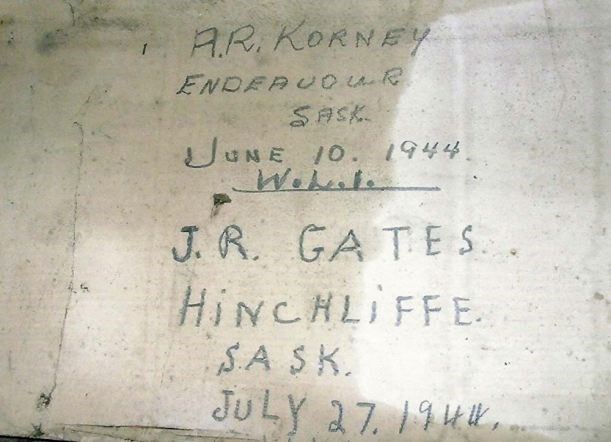 A.R. KORNEY
ENDEAVOUR
SASK.
JUNE 10. 1944.
W.L.I.
J.R. GATES
HINCHLIFFE.
SASK.
JULY 27. 1944.